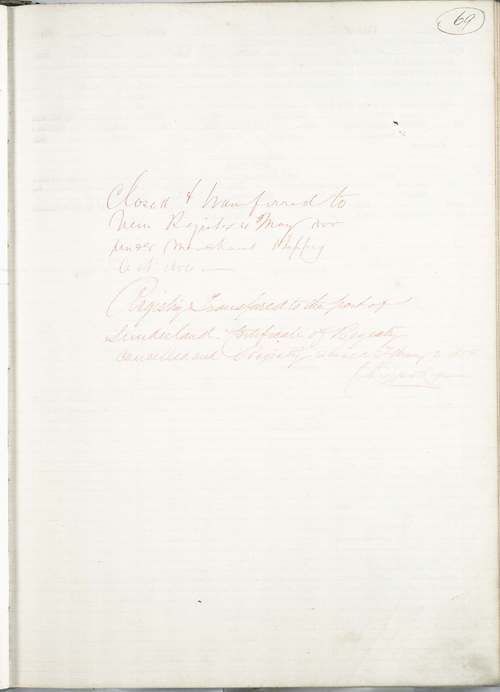 69
Closed & transferred to
New Register May
under Merchant Shipping
Act
Registry Transfered to the port of
Sunderland. Certificate of Registry
cancelled and Registry closed May